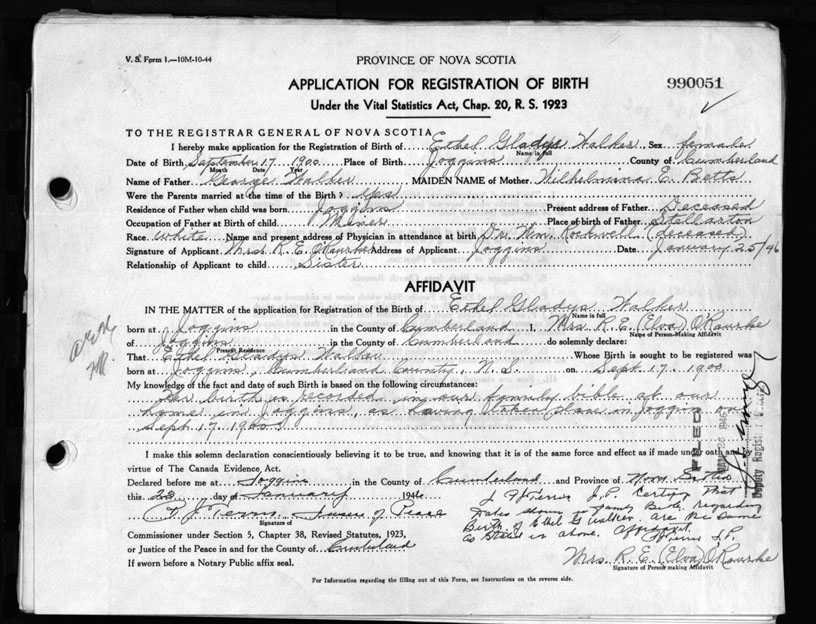 V. S. Form 1.—10M-10-44
PROVINCE OF NOVA SCOTIA
APPLICATION FOR REGISTRATION OF BIRTH
990051
Under the Vital Statistics Act, Chap. 20, R. S. 1923
TO THE REGISTRAR GENERAL OF NOVA SCOTIA
I hereby make application for the Registration of Birth of Ethel Gladys Walker Sex female
Name in full
Date of Birth September 17 1900 Place of Birth Joggins County of Cumberland
Month Date Year
Name of Father George Walker MAIDEN NAME of Mother Wilhelmina E. Betts
Were the Parents married at the time of the Birth? yes
Residence of Father when child was born Joggins Present address of Father Deceased
Occupation of Father at Birth of child Miner Place of birth of Father Stellarton
Race White Name and present address of Physician in attendance at birth Dr. Wm. Rockwell (deceased)
Signature of Applicant Mrs R. E. O'Rourke Address of Applicant Joggins Date January 25/46
Relationship of Applicant to child Sister
AFFIDAVIT
IN THE MATTER of the application for Registration of the Birth of Ethel Gladys Walker
Name in full
born at Joggins in the County of Cumberland I, Mrs R. E. (Elva) O'Rourke
Name of Person Making Affidavit
of Joggins in the County of Cumberland do solemnly declare:
Present Residence
That Ethel Gladys Walker Whose Birth is sought to be registered was
born at Joggins, Cumberland County, N. S. on Sept. 17. 1900
My knowledge of the fact and date of such Birth is based on the following circumstances:
Her birth is recorded in our family bible at our
home in Joggins, as having taken place in Joggins on
Sept. 17. 1900
I make this solemn declaration conscientiously believing it to be true, and knowing that it is of the same force and effect as if made under oath and by
virtue of The Canada Evidence Act.
Declared before me at Joggins in the County of Cumberland and Province of Nova Scotia
this 28 day of January 1946
Justice of Peace
Signature of
J. P. Certify that
Dates shown in Family Bible regarding
Birth of Ethel G Walker are the same
as stated in above affidavit.
J.P.
Commissioner under Section 5, Chapter 38, Revised Statutes, 1923,
or Justice of the Peace in and for the County of Cumberland
If sworn before a Notary Public affix seal.
Mrs. R. E. (Elva) O'Rourke
Signature of Person making Affidavit
For Information regarding the filling out of this Form, see Instructions on the reverse side.
FILED
Deputy Registrar